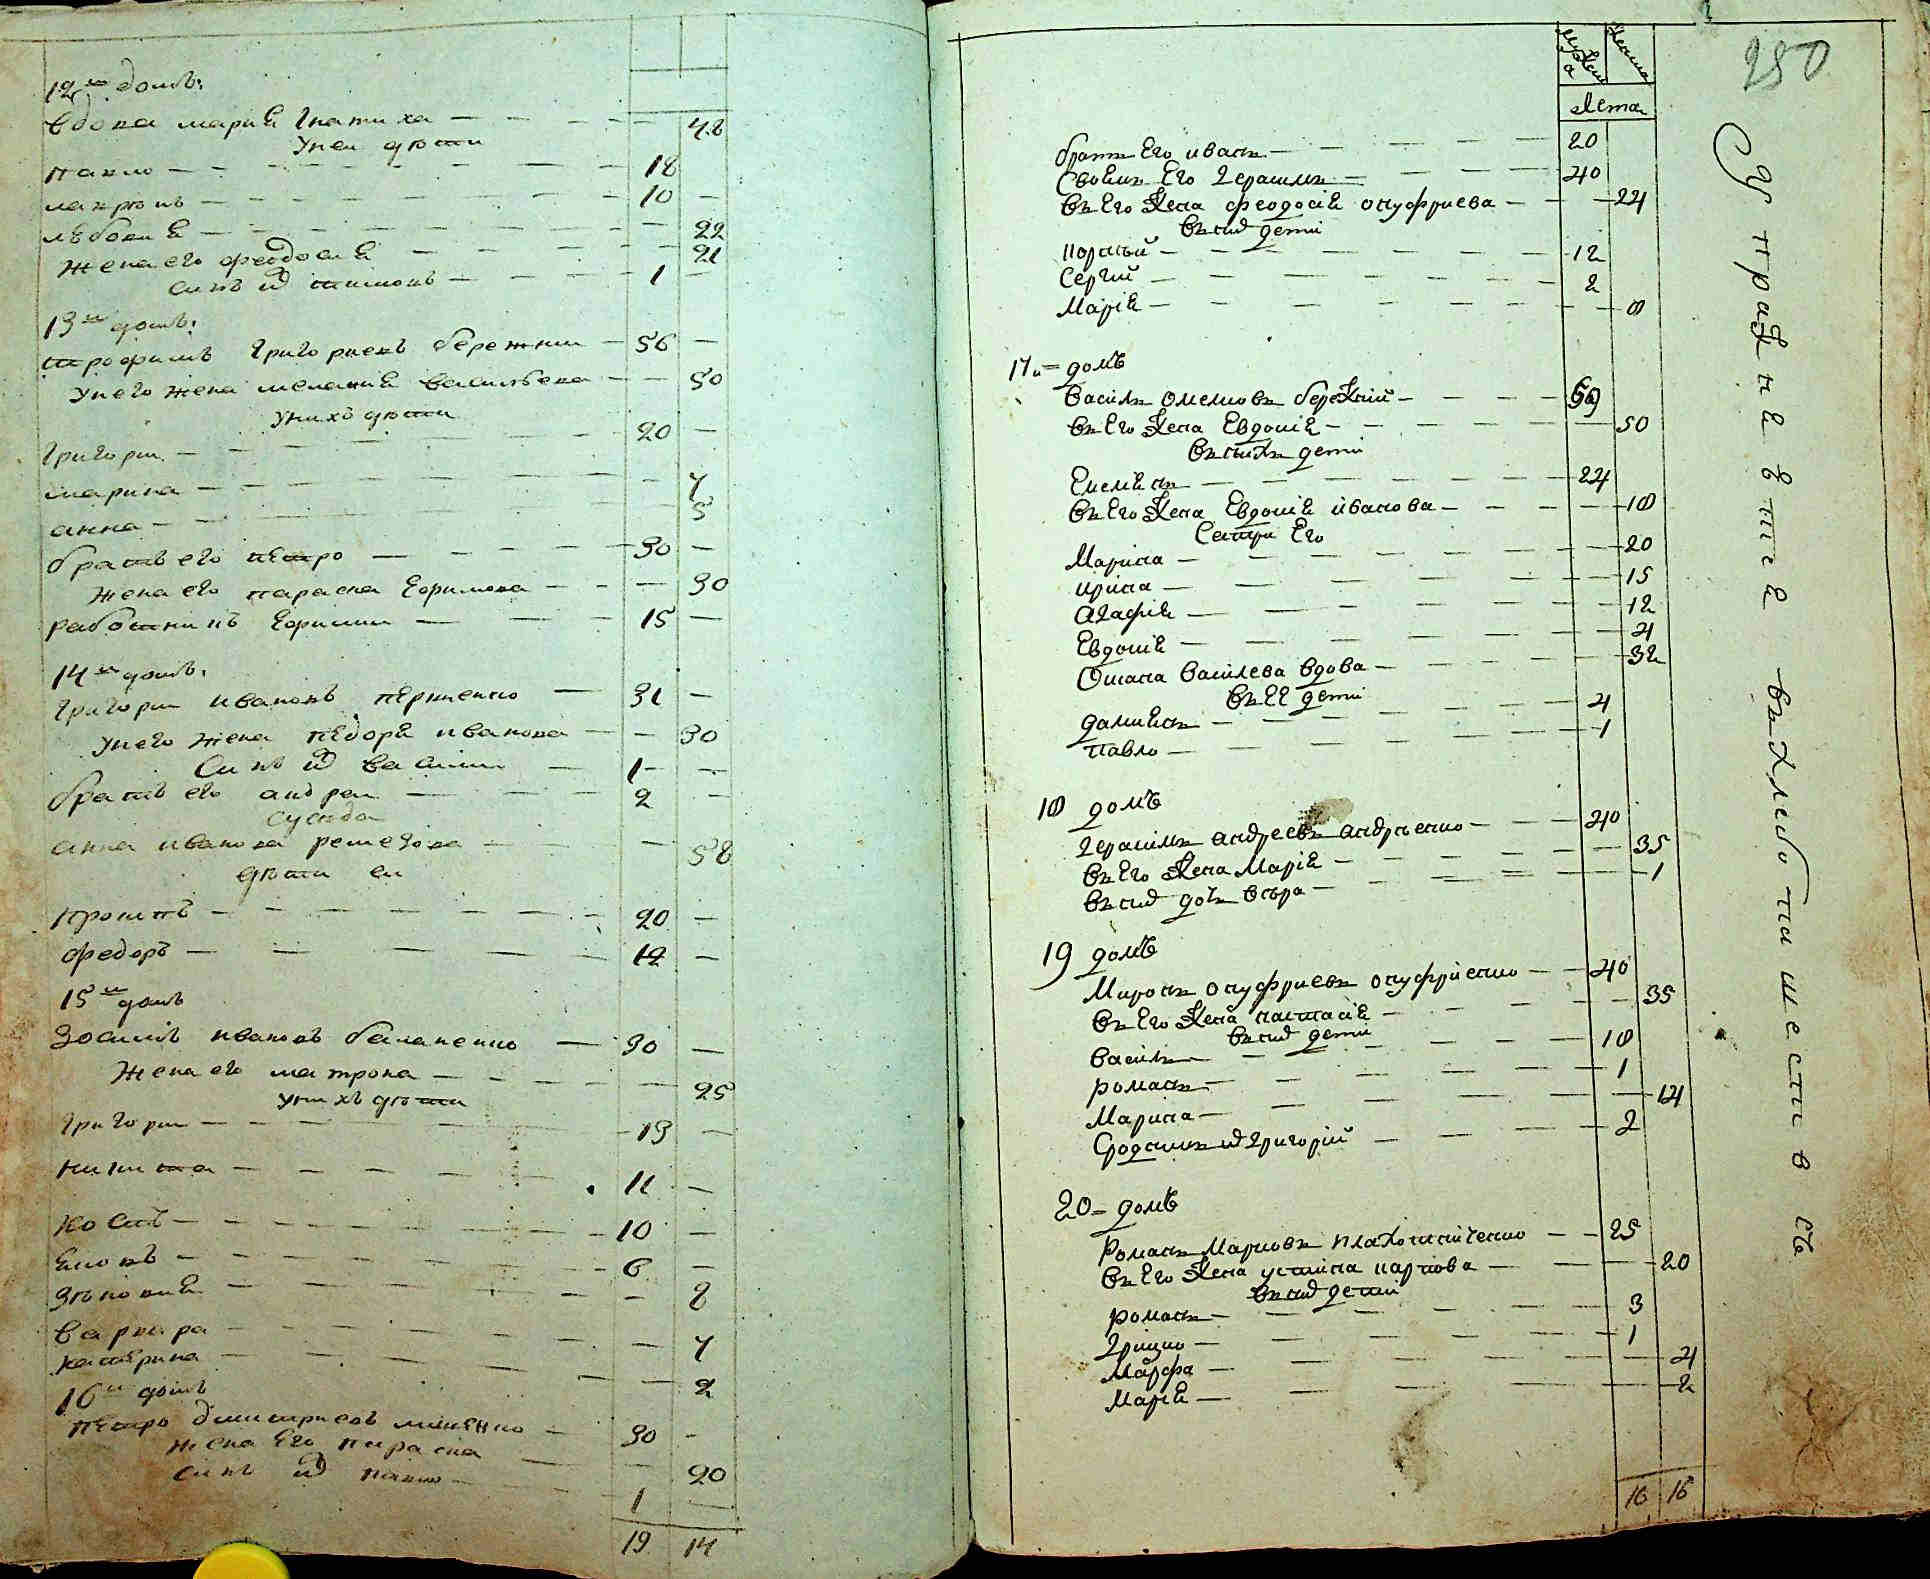 12й домъ:
вдова мария Гнатиха — 48
У неи дѣти
павло — 18
лавронъ — 10 —
любовия — 22
жена его феодосия — 21
синъ их тимонъ — 1 —
13й домъ:
трофимъ Григориевъ бережни — 56 —
У него жена мелания василиева — 50
У нихъ дѣти
Григори — 20 —
марина — 7
анна — 5
братъ его пєтро — 30 —
жена его параска Єфимова — 30
работникъ Єфими — 15 —
14й домъ:
Григори ивановъ — 31 —
У него жена пєдоря иванова — 30
Синъ их васили — 1 —
братъ его андреи — 2 —
сусида
анна иванова решетова — 58
дѣти еи
прошпъ — 20 —
федоръ — 12 —
15й домъ
Зосимъ ивановъ баланенко — 30 —
Жена его матрона — 25
У нихъ дѣти
Григори — 13 —
никита — 11 —
космъ — 10 —
Яковъ — 6 —
Зѣновия — 8
варвара — 7
катєрина — 2
16й домъ
пєтро дмитриевъ — 30 —
Жена Єго параска — 20
синъ их павло — 1 —
19 14
мужеска женска
лета
250
братъ Єго иванъ — 20
Своякъ Єго Герасимъ — 40
въ Єго жена феодосия онуфриева — 24
въ них дети
порфый — 12
Сергий — 2
Мария — 8
17й домъ
Василь омелковъ бережний — 59
въ Єго жена Євдокия — 50
въ нихъ дети
Ємелянъ — 24
въ Єго жена Євдокия иванова — 18
Сєстри Єго
Марина — 20
ирина — 15
Агафия — 12
Євдокия — 4
Оксана василева вдова — 32
въ ЄЄ дети
дамиянъ — 4
павло — 1
18 домъ
Герасимъ андреевъ андрѣенко — 40
въ Єго жена Мария — 35
въ них дочъ вѣра — 1
19 домъ
Миронъ онуфриевъ онуфрийенко — 40
въ Єго жена настасия — 35
въ них дети
Василь — 18
романъ — 1
Марина — 14
Сродникъ их Григорий — 2
20 домъ
Романъ Марковъ плахотниченко — 25
въ Єго жена устина карпова — 20
въ них дети
романъ — 3
Грицко — 1
Марфа — 4
Мария — 2
16 16